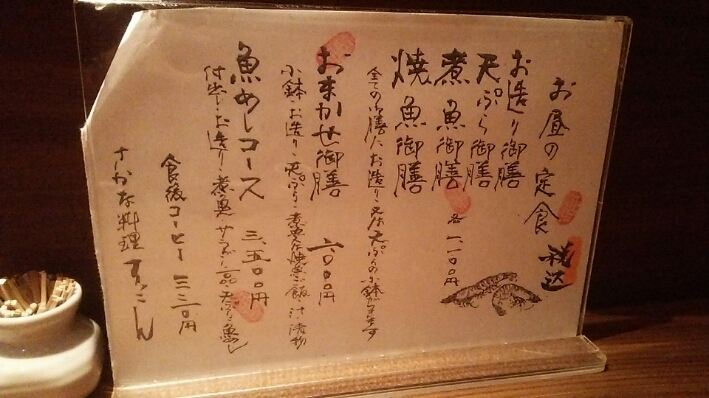 お昼の定食 税込
お造り御膳
天ぷら御膳
煮魚御膳 各一、一〇〇円
焼魚御膳
全ての御膳にお造り又は天ぷらの小鉢がつきます
おまかせ御膳
小鉢・お造り・天ぷら・煮魚又は焼魚・ご飯・汁・漬物
魚めしコース 三、五〇〇円
付出し・お造り・煮魚 サラダ 天ぷら 魚めし
食後コーヒー 三三〇円
さかな料理